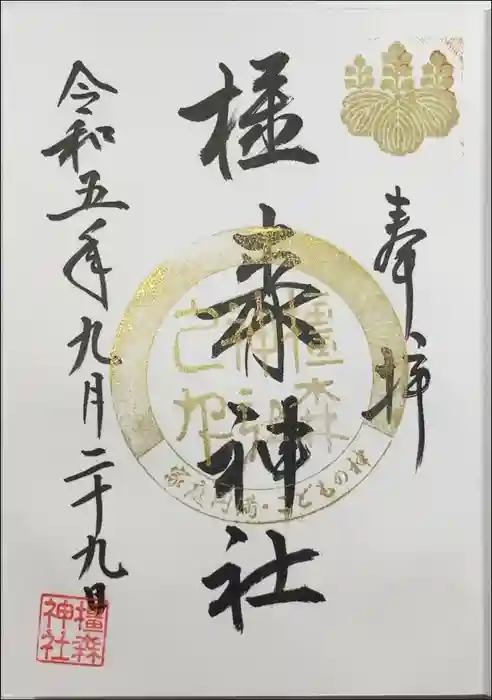 奉拝
橿森神社
令和五年九月二十九日
橿森
神社
家庭円満・こどもの神
橿森
神社